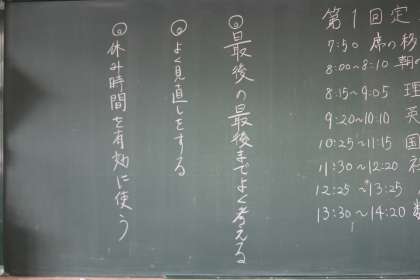 ◎最後の最後までよく考える
◎よく見直しをする
◎休み時間を有効に使う
第1回定
7:50 席の移
8:00~8:10 朝の
8:15~9:05 理
9:20~10:10 英
10:25~11:15 国
11:30~12:20 社
12:25~13:25
13:30~14:20 数